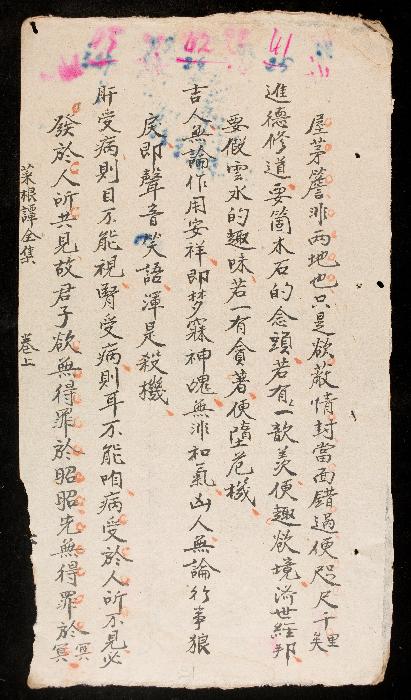 屋茅簷非兩地也只是欲蔽情封當面錯過便咫尺千里矣
進德修道要箇木石的念頭若有一歆羨便趣欲境濟世經邦
要假雲水的趣味若一有貪著便墮危機
吉人無論作用安祥即梦寐神魂無非和氣凶人無論行事狼
戾即聲音笑語渾是殺機
肝受病則目不能視腎受病則耳不能咱病受於人所不見必
發於人所共見故君子欲無得罪於昭昭先無得罪於冥冥
菜根譚全集 卷上
41
25
42
26